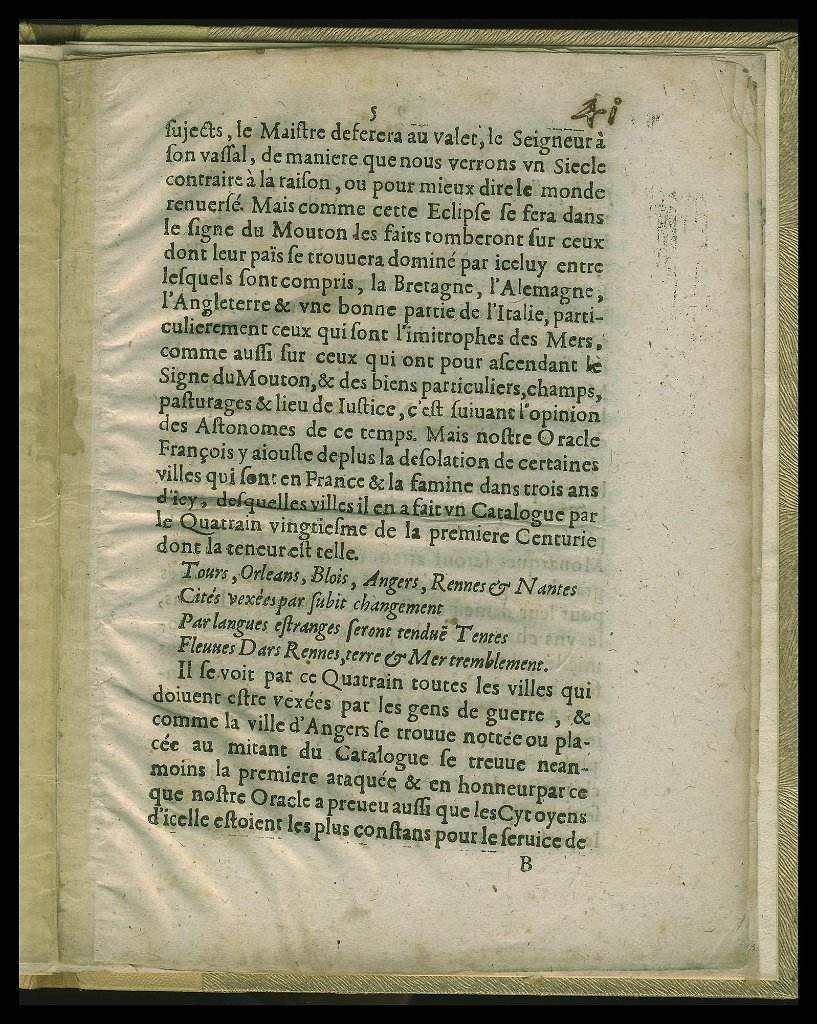 5
41
sujects, le Maistre deferera au valet, le Seigneur à
son vassal, de maniere que nous verrons vn Siecle
contraire à la raison, ou pour mieux dire le monde
renuersé. Mais comme cette Eclipse se fera dans
le signe du Mouton les faits tomberont sur ceux
dont leur païs se trouuera dominé par iceluy entre
lesquels sont compris, la Bretagne, l'Alemagne,
l'Angleterre & vne bonne partie de l'Italie, parti-
culierement ceux qui sont l'imitrophes des Mers,
comme aussi sur ceux qui ont pour ascendant le
Signe du Mouton, & des biens particuliers, champs,
pasturages & lieu de Iustice, c'est suiuant l'opinion
des Astonomes de ce temps. Mais nostre Oracle
François y aiouste deplus la desolation de certaines
villes qui sont en France & la famine dans trois ans
d'icy, desquelles villes il en a fait vn Catalogue par
le Quatrain vingtiesme de la premiere Centurie
dont la teneur est telle.
Tours, Orleans, Blois, Angers, Rennes & Nantes
Cités vexées par subit changement
Par langues estranges seront tenduë Tentes
Fleuues Dars Rennes, terre & Mer tremblement.
Il se voit par ce Quatrain toutes les villes qui
doiuent estre vexées par les gens de guerre, &
comme la ville d'Angers se trouue nottée ou pla-
cée au mitant du Catalogue se treuue nean-
moins la premiere ataquée & en honneur par ce
que nostre Oracle a preueu aussi que les Cytoyens
d'icelle estoient les plus constans pour le seruice de
B